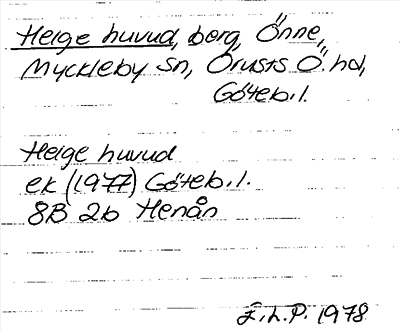 Helge huvud, berg, Önne,
Myckleby sn, Orusts Ö. hd,
Göteb.l.
Helge huvud
ek (1977) Göteb.l.
8B 2b Henån
E.L.P. 1978